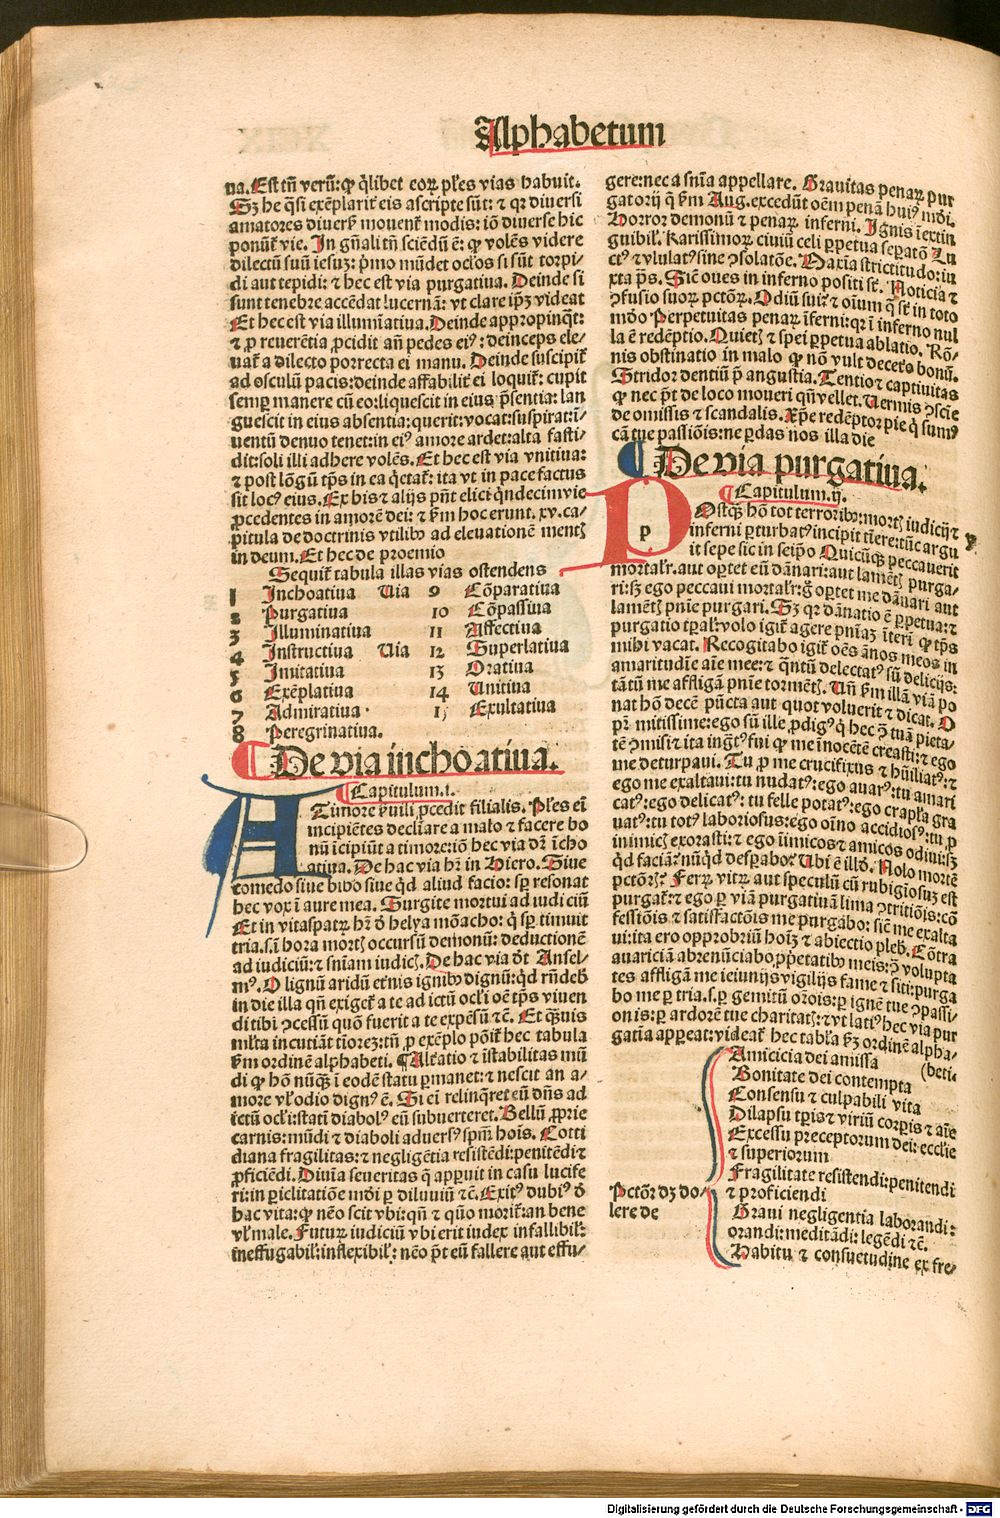 Alphabetum
ua. Est tñ verũ: ꝙ q̃libet eoꝝ ples vias habuit.
Sꝫ he q̃si exẽplarit̃ eis ascripte sũt: ⁊ qꝛ diuersi
amatores diuersꝭ mouent̃ modis: iõ diuerse hic
ponũt̃ vie. In gñali tñ sciẽdũ ẽ: ꝙ volẽs videre
dilectũ suũ iesuꝫ: pͥmo mũdet oclos si sũt torpi⸗
di aut tepidi: ⁊ hec est via purgatiua. Deinde si
sunt tenebre accẽdat lucernã: vt clare ip̃ꝫ videat
Et hec est via illumĩatiua. Deinde appropinq̃t:
⁊ ꝓ reuerẽtia ꝓcidit añ pedes eiꝰ: deinceps ele⸗
uat̃ a dilecto porrecta ei manu. Deinde suscipit̃
ad osculũ pacis: deinde affabilit̃ ei loquit̃: cupit
semꝑ manere cũ eo: liquescit in eius p̃sentia: lan
guescit in eius absentia: querit: vocat: suspirat: ĩ⸗
uentũ denuo tenet: in eiꝰ amore ardet: alta fasti⸗
dit: soli illi adhere volẽs. Et hec est via vnitiua:
⁊ post lõgũ tp̃s in ea q̃etat̃: ita vt in pace factus
sit locꝰ eius. Ex his ⁊ alijs pñt elici q̃ndecim vie
ꝓcedentes in amorẽ dei: ⁊ ẜm hoc erunt .xv. ca⸗
pitula de doctrinis vtilibꝰ ad eleuationẽ mentꝭ
in deum. Et hec de proemio
Sequit̃ tabula illas vias ostendens
1 Inchoatiua Uia 9 Cõparatiua
2 Purgatiua 10 Cõpassiua
3 Illuminatiua 11 Affectiua
4 Instructiua Uia 12 Superlatiua
5 Imitatiua 13 Oratiua
6 Exẽplatiua 14 Unitiua
7 Admiratiua 15 Exultatiua
8 Peregrinatiua.
De via inchoatiua.
Capitulum .i.
A Timore ẜuili ꝓcedit filialis. Ples eñ
incipiẽtes declĩare a malo ⁊ facere bo
nũ ĩcipiũt a timore: iõ hec via dꝛ ĩcho
atiua. De hac via hr̃ in Hiero. Siue
comedo siue bibo siue q̃d aliud facio: sꝑ resonat
hec vox ĩ aure mea. Surgite mortui ad iudiciũ
Et in vitaspatꝝ hr̃ ð helya mõacho: q̃ sꝑ timuit
tria. s. ĩ hora mortꝭ occursũ demonũ: deductionẽ
ad iudiciũ: ⁊ sñiam iudicꝭ. De hac via ðt Ansel⸗
mꝰ. O lignũ aridũ et̃nis ignibꝰ dignũ: q̃d rñdeb̃
in die illa qñ exiget̃ a te ad ictũ ocl'i oẽ tp̃s viuen
di tibi ↄcessũ quõ fuerit a te expẽsũ ⁊c̃. Et q̃muis
ml'ta incutiãt tiorez: tñ ꝓ exẽplo põit̃ hec tabula
ẜm ordinẽ alphabeti. ¶ Alt̃atio ⁊ ĩstabilitas mũ
di ꝙ hõ nũq̃ ĩ eodẽ statu ꝑmanet: ⁊ nescit an a⸗
more vl' odio dignꝰ ẽ. Si eĩ relinq̃ret eũ dñs ad
ictũ ocl'i: stati diabolꝰ eũ subuerteret. Bellũ ꝓprie
carnis: mũdi ⁊ diaboli aduersꝰ spm̃ hoĩs. Cotti
diana fragilitas: ⁊ negligẽtia resistẽdi: penitẽdi ⁊
ꝓficiẽdi. Diuĩa seueritas q̃ appuit in casu lucife
ri: in ꝑiclitatiõe mõi ꝑ diluuiũ ⁊c̃. Exitꝰ dubiꝰ ð
hac vita: ꝙ nẽo scit vbi: qñ ⁊ quõ morit̃: an bene
vl' male. Futuꝝ iudiciũ vbi erit iudex infallibil':
ineffugabil': inflexibil': nẽo põt eũ fallere aut effu⸗
gere: nec a sñia appellare. Grauitas penaꝝ pur
gatorij q̃ ẜm Aug. excedũt oẽm penã huiꝰ mõi.
Horror demonũ ⁊ penaꝝ inferni. Ignis ĩextin
guibil'. Karissimoꝝ ciuiũ celi ꝑpetua sepatõ. Lu
ctꝰ ⁊ vlulatꝰ sine ↄsolatõe. Maxĩa strictitudo: iu
xta p̃s. Sic̃ oues in inferno positi st̃. Noticia ⁊
ↄfusio suoꝝ pctõꝝ. Odiũ sui: ⁊ oĩum q̃ st̃ in toto
mõo Perpetuitas penaꝝ ĩferni: qꝛ ĩ inferno nul
la ẽ redẽptio. Quietꝭ ⁊ spei ꝑpetua ablatio. Rõ⸗
nis obstinatio in malo ꝙ nõ vult decet̃o bonũ.
Stridor dentiũ p̃ angustia. Tentio ⁊ captiuitas
ꝙ nec põt de loco moueri qñ vellet. Uermis ↄscie
de omissis ⁊ scandalis. Xp̃e redẽptor pie q̃ sumꝰ
cã tue passiõis: ne ꝑdas nos illa die
De via purgatiua.
Capitulum .ij.
POstq̃ hõ tot terroribꝰ: mortꝭ iudicij ⁊
inferni ꝑturbatꝰ incipit tĩere: tũc argu
it sepe sic in seip̃o Quicũq̃ peccauerit
mortal'r. aut oꝑtet eũ dãnari: aut lamẽtꝭ purga⸗
ri: sꝫ ego peccaui mortal'r: g̃ oꝑtet me dãnari aut
lamẽtꝭ pnĩe purgari. Sꝫ qꝛ dãnatio ẽ ꝑpetua: ⁊
purgatio tꝑal': volo igit̃ agere pnĩaꝫ ĩterĩ ꝙ tp̃s
mihi vacat. Recogitabo igit̃ oẽs ãnos meos in
amaritudĩe aĩe mee: ⁊ q̃ntũ delectatꝰ sũ delicijs:
tãtũ me affligã pnĩe tormẽtꝭ. Uñ ẜm illã viã po
nat hõ decẽ pũcta aut quot voluerit ⁊ dicat. O
pr̃ mitissime: ego sũ ille ꝓdigꝰ q̃ hec ↄ̃ tuã pieta⸗
tẽ ↄ̃misi ⁊ ita ing̃tꝰ fui ꝙ me ĩnocẽtẽ creasti: ⁊ ego
me deturpaui. Tu ꝓ me crucifixus ⁊ hũiliatꝰ: ⁊
ego me exaltaui: tu nudatꝰ: ego auarꝰ: tu amari
catꝰ: ego delicatꝰ: tu felle potatꝰ: ego crapl'a gra
uatꝰ: tu totꝰ laboriosus: ego oĩno accidiosꝰ: tu ꝓ
inimicꝭ exorasti: ⁊ ego ĩimicos ⁊ amicos odiui: sꝫ
q̃d faciã? nũq̃d despabo? Ubi ẽ illð. Nolo mortẽ
pctõrꝭ? Ferꝝ vitꝝ aut speculũ cũ rubigĩosuꝫ est
purgat̃: ⁊ ego ꝑ viã purgatiuã lima ↄtritiõis: cõ
fessiõis ⁊ satisfactõis me purgabo: sic̃ me exalta
ui: ita ero opprobriũ hoĩꝫ ⁊ abiectio pleb̃. Cõtra
auariciã abrenũciabo ꝓp̃etatibꝰ meis: ↄ̃ volupta
tes affligã me ieiunijs vigilijs fame ⁊ siti: purga
bo me ꝑ tria. s. ꝑ gemitũ orõis: ꝑ ignẽ tue ↄpassi⸗
onis: ꝑ ardorẽ tue charitatꝭ: ⁊ vt latiꝰ hec via pur
gatĩa appeat: videat̃ hec tabl'a ẜꝫ ordinẽ alpha⸗
(beti.
Pctõꝝ dꝫ do⸗
lere de
Amicicia dei amissa
Bonitate dei contempta
Consensu ⁊ culpabili vita
Dilapsu tp̃ris ⁊ viriũ corꝑis ⁊ aĩe
Excessu preceptorum dei: ecclie
⁊ superiorum
Fragilitate resistendi: penitendi
⁊ proficiendi
Graui negligentia laborandi:
orandi: meditãdi: legẽdi ⁊c̃.
Habitu ⁊ consuetudine ex fre⸗
Digitalisierung gefördert durch die Deutsche Forschungsgemeinschaft - DFG